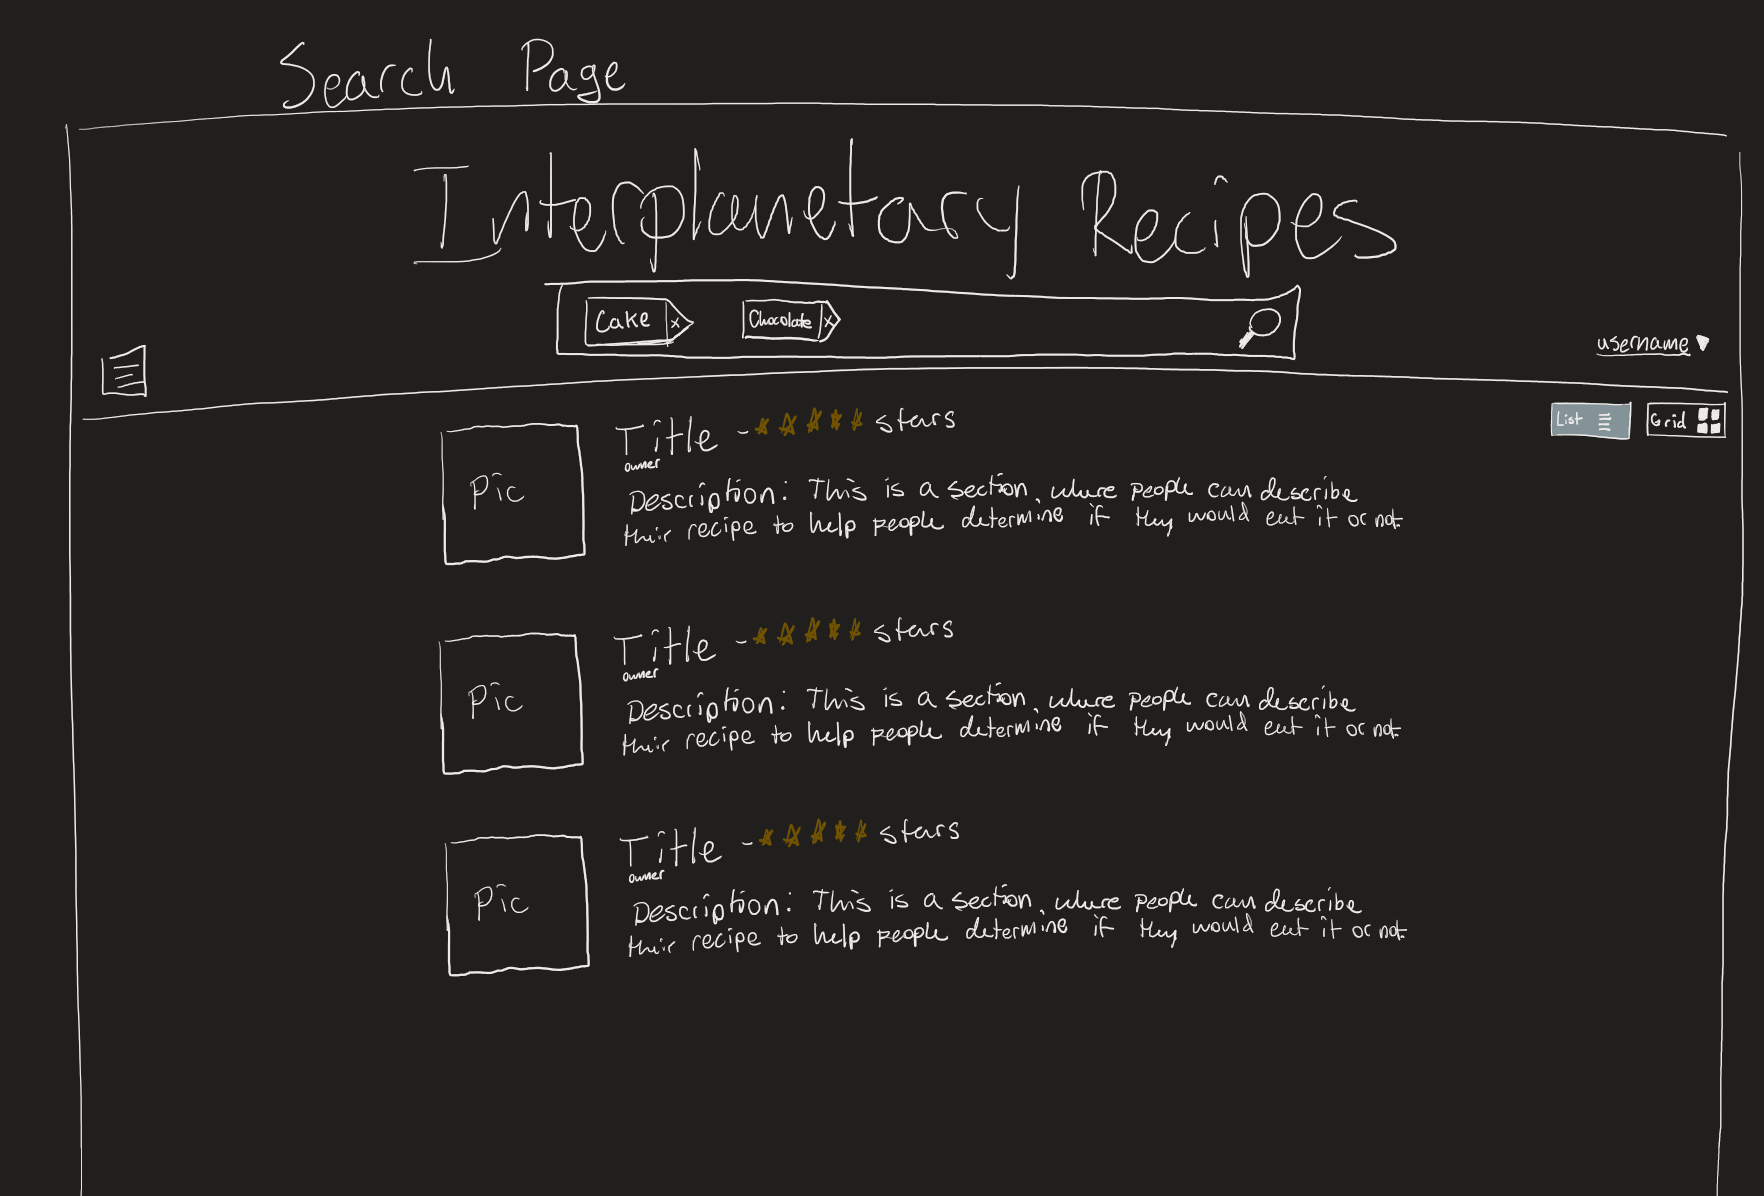 Search Page
Interplanetary Recipes
Cake x Chocolate x
username
List Grid
Pic
Title - stars
owner
Description: This is a section, where people can describe
their recipe to help people determine if they would eat it or not.
Pic
Title - stars
owner
Description: This is a section, where people can describe
their recipe to help people determine if they would eat it or not.
Pic
Title - stars
owner
Description: This is a section, where people can describe
their recipe to help people determine if they would eat it or not.